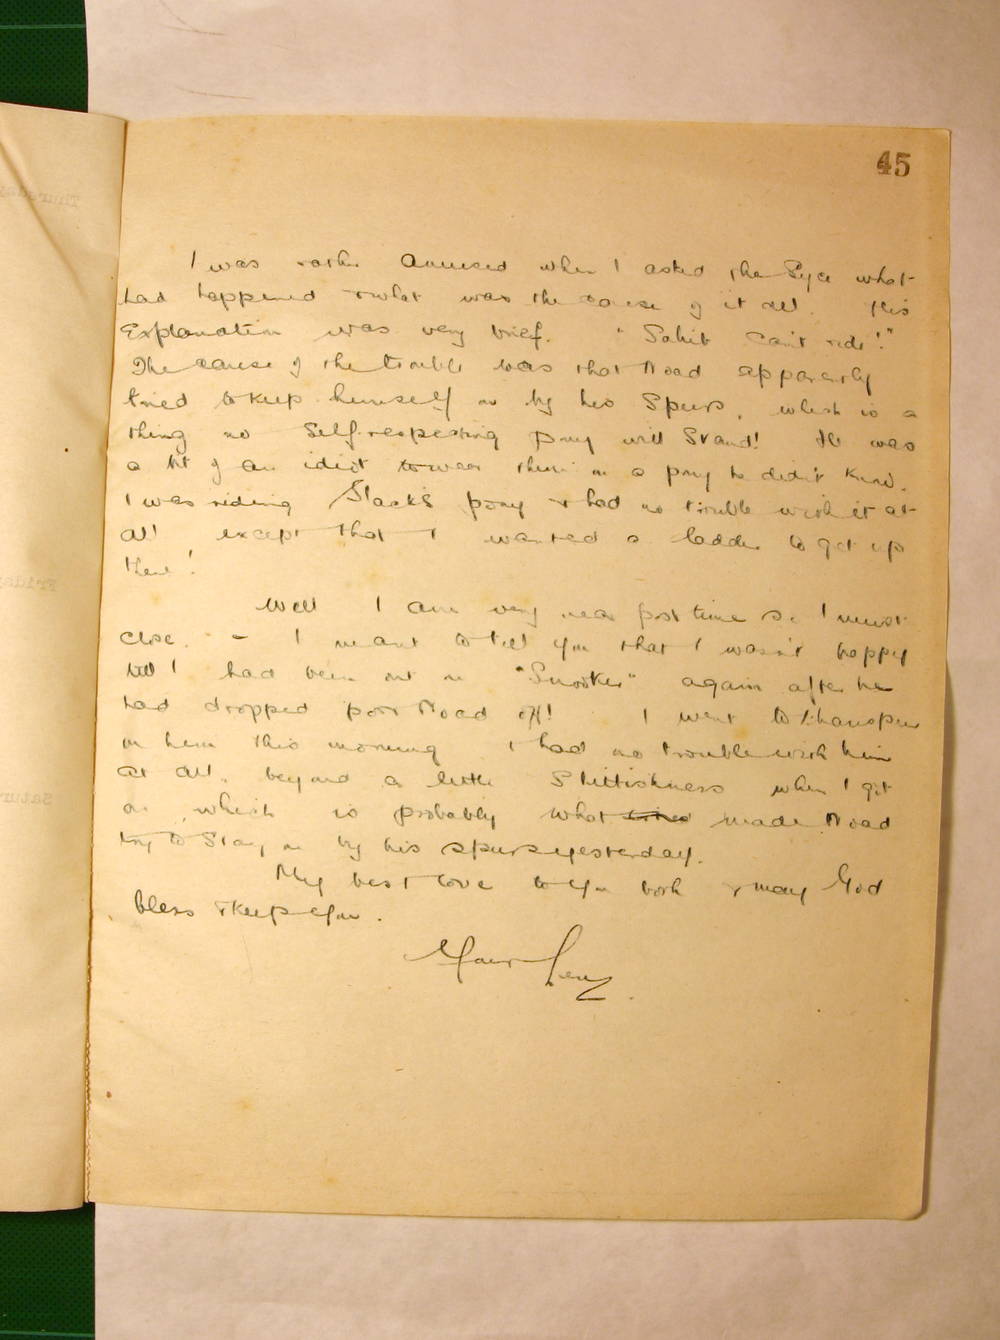 45
I was rather amused when I asked the Syce what
had happened & what was the cause of it all. His
Explanation was very brief. "Sahib can't ride!"
The cause of the trouble was that Noad apparently
tried to keep himself on by his Spurs, which is a
thing no Self-respecting pony will Stand! He was
a bit of an idiot to wear them on a pony he didn't know.
I was riding Slack's pony & had no trouble with it at
all except that I wanted a ladder to get up
there!
Well I am very near post time so I must
close. - I meant to tell you that I wasn't happy
till I had been out on "Snooker" again after he
had dropped poor Noad off! I went to
on him this morning & had no trouble with him
at all, beyond a little Skittishness when I got
on, which is probably what made Noad
try to Stay on by his spurs yesterday.
My best love to you both & may God
bless & keep you.
Your
Thursday
Friday
Satur